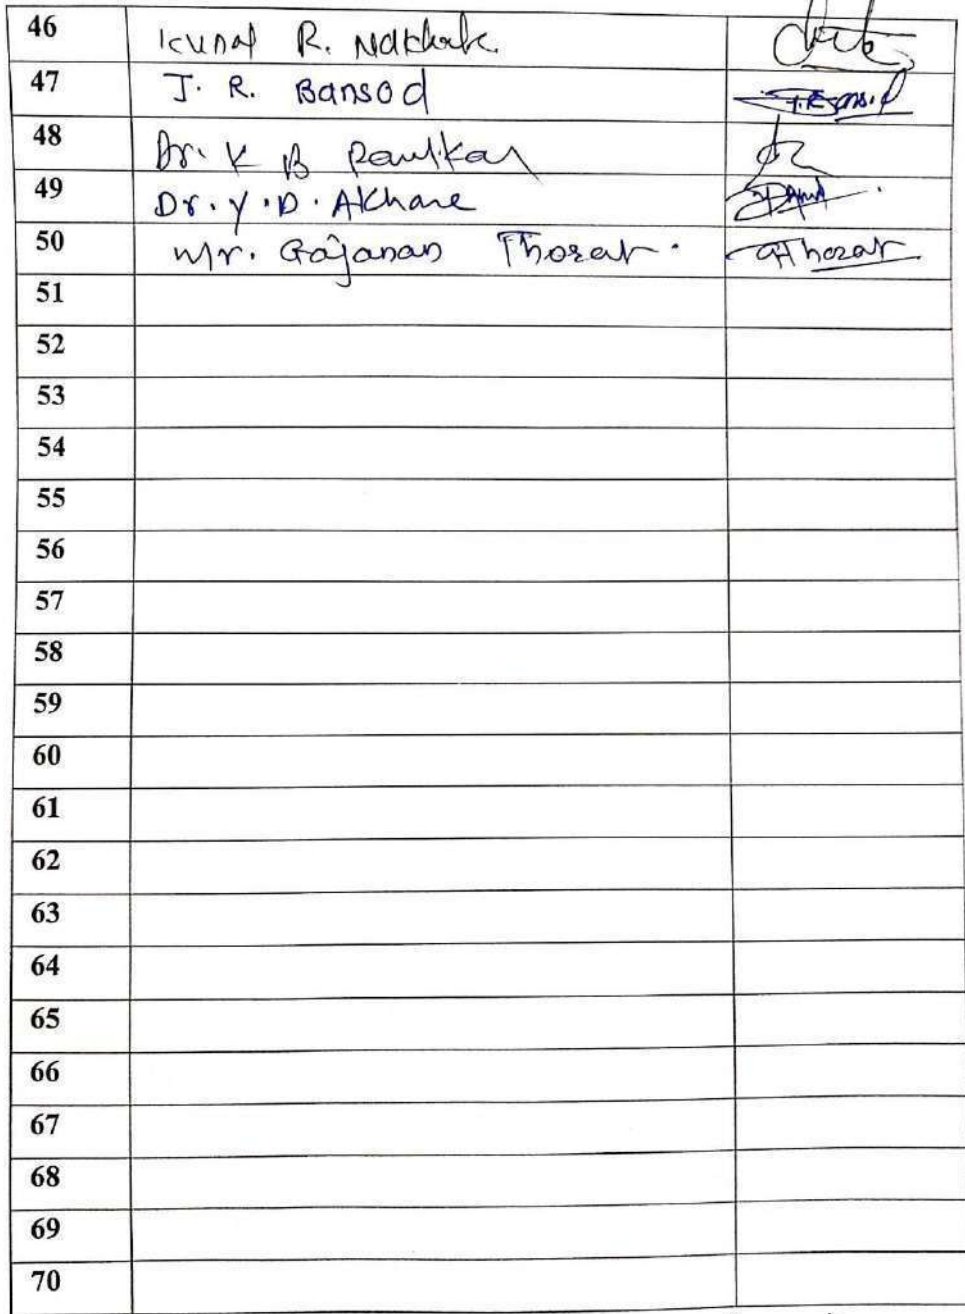 46 Kunal R.
47 J. R. Bansod
48 Dr. K B Raulkar
49 Dr. Y. D. Akhare
50 Mr. Gajanan Thorat. GThorat
51
52
53
54
55
56
57
58
59
60
61
62
63
64
65
66
67
68
69
70